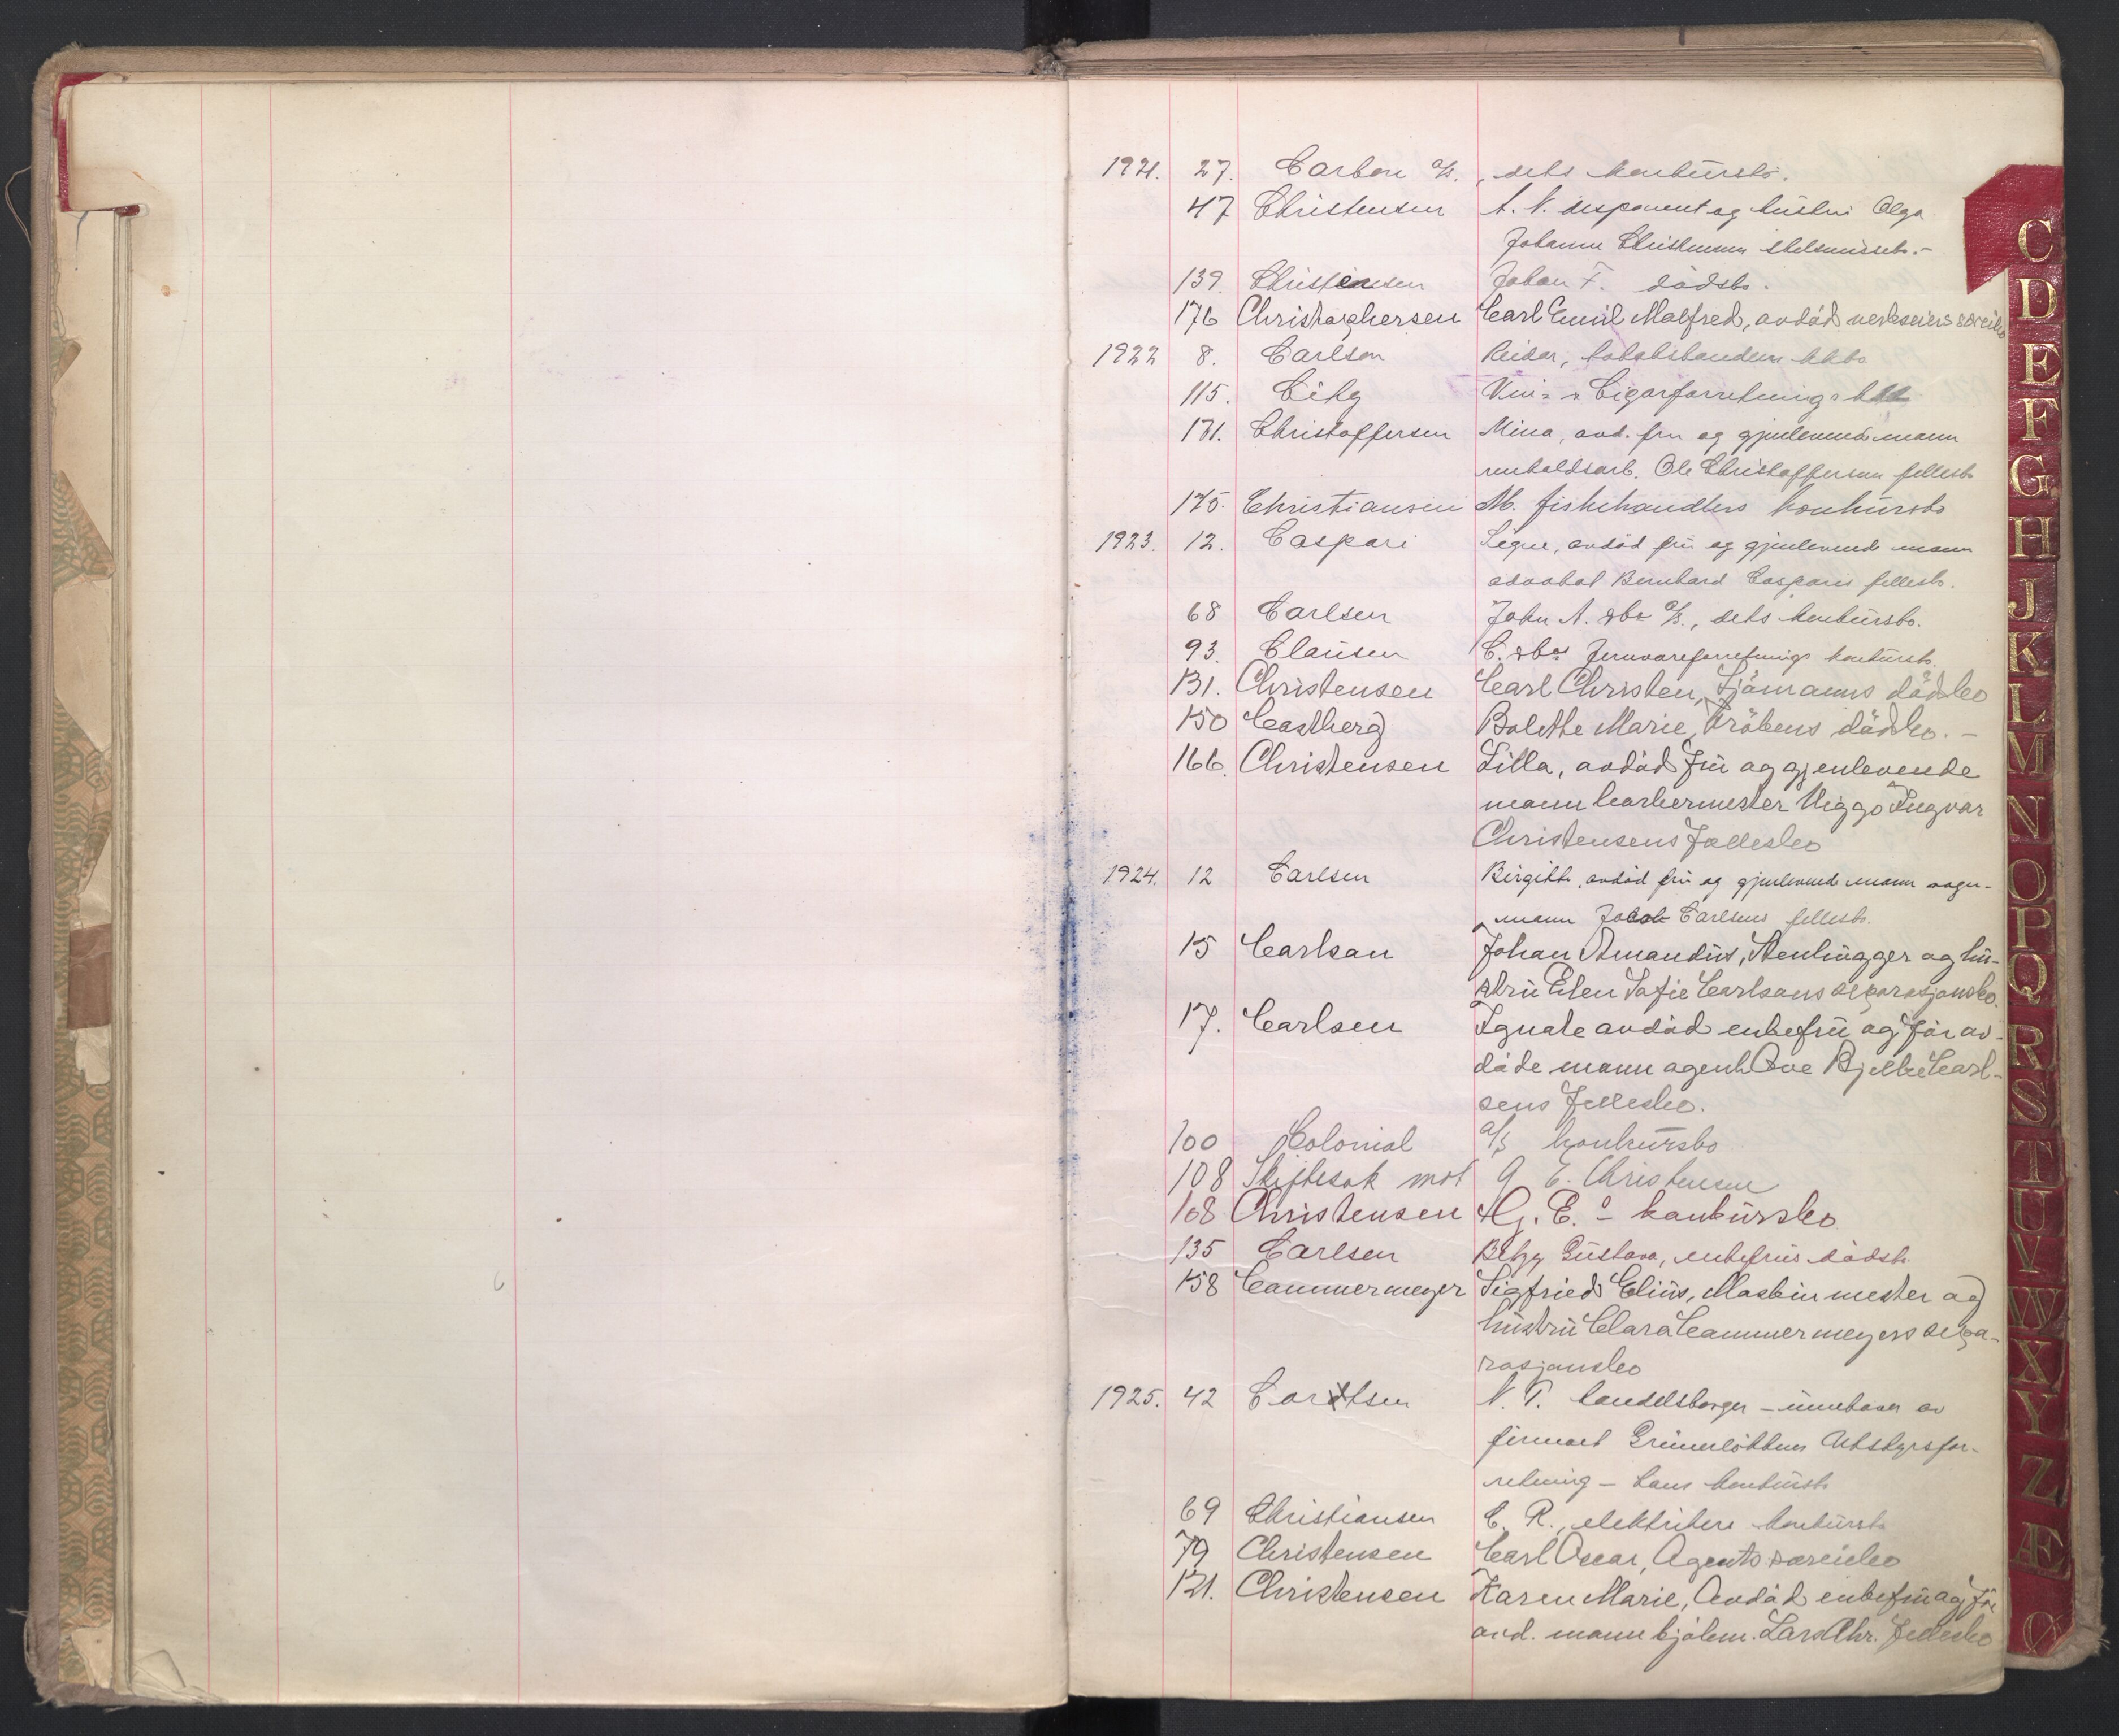 1921. 27. Carbon A/S. , dets konkursbo.
47 Christensen A. N. disponent og hustru Olga
Johanne Christensens skilsmissebo.-
139. Christensen Johan F. dödsbo.
176 Christophersen Carl Emil Malfred, avdöd verkseiers særeiebo
1922 8. Carlson Reidar, kkbo
115. City Vin- & Cigarforretnings kkbo
131. Christoffersen Mina, avd. fru og gjenlevende mann
renholdsarb. Ole Christoffersens fellesbo
175. Christiansen M. fiskehandlers konkursbo
1923. 12. Caspari Signe, avdöd frü og gjenlevende mann
advokat Bernhard Casparis fellesbo.
68 Carlsen John A. & Co A/S., dets konkursbo.
93. Clausen C. & Cos Jernvareforretnings konkursbo.
131. Christensen Carl Christen, Sjömanns dödsbo
150 Castberg Bolette Marie, Frökens dödsbo. -
166. Christensen Lilla, avdöd Frü og gjenlevende
mann barbermester Viggo Ingvar
Christensens Fællesbo
1924. 12 Carlsen Birgitte, avdöd frü og gjenlevende mann vogn-
mann Jacob Carlsens fellesbo.
15 Carlson Johan Amandus, Stenhugger og hu-
stru Elen Sofie Carlsons separasjonsbo.
17. Carlsen Agnate avdöd enkefrü og för av-
döde mann agent Ove Bjelke Carl-
sens Fellesbo.
100 Colonial A/S konkursbo
108 Skiftesak mot G E. Christensen
108 Christensen G. E.s - konkursbo
135 Carlsen Betzy Gustava, enkefrus dödsbo
158 Cammermeyer Sigfried Elius, Maskinmester og
hustru Clara Cammermeyers sepa-
rasjonsbo
1925. 42 Cordtsen N. T. handelsborger - innehaver av
firmaet Grünerlökkens Utstyrsfor-
retning - hans konkursbo
69 Christiansen C. R., elektrikers konkursbo
79 Christensen Carl Oscar, Agents særeiebo
121. Christensen Karen Marie, Avdöd enkefrü og för
avd. mann kjölem. Lars Chr. Fellesbo
C
D
E
F
G
H
J
K
L
M
N
O
P
Q
R
S
T
U
V
W
X
Y
Z
Æ
Ø